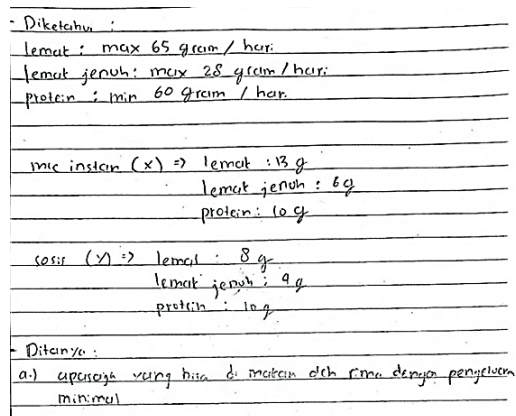 - Diketahui :
lemak : max 65 gram / hari
lemak jenuh : max 28 gram / hari
protein : min 60 gram / hari
mie instan (x) => lemak : 13 g
lemak jenuh : 6 g
protein : 10 g
sosis (y) => lemak : 8 g
lemak jenuh : 4 g
protein : 10 g
- Ditanya :
a.) apa saja yang bisa di makan oleh rima dengan pengeluaran
minimal